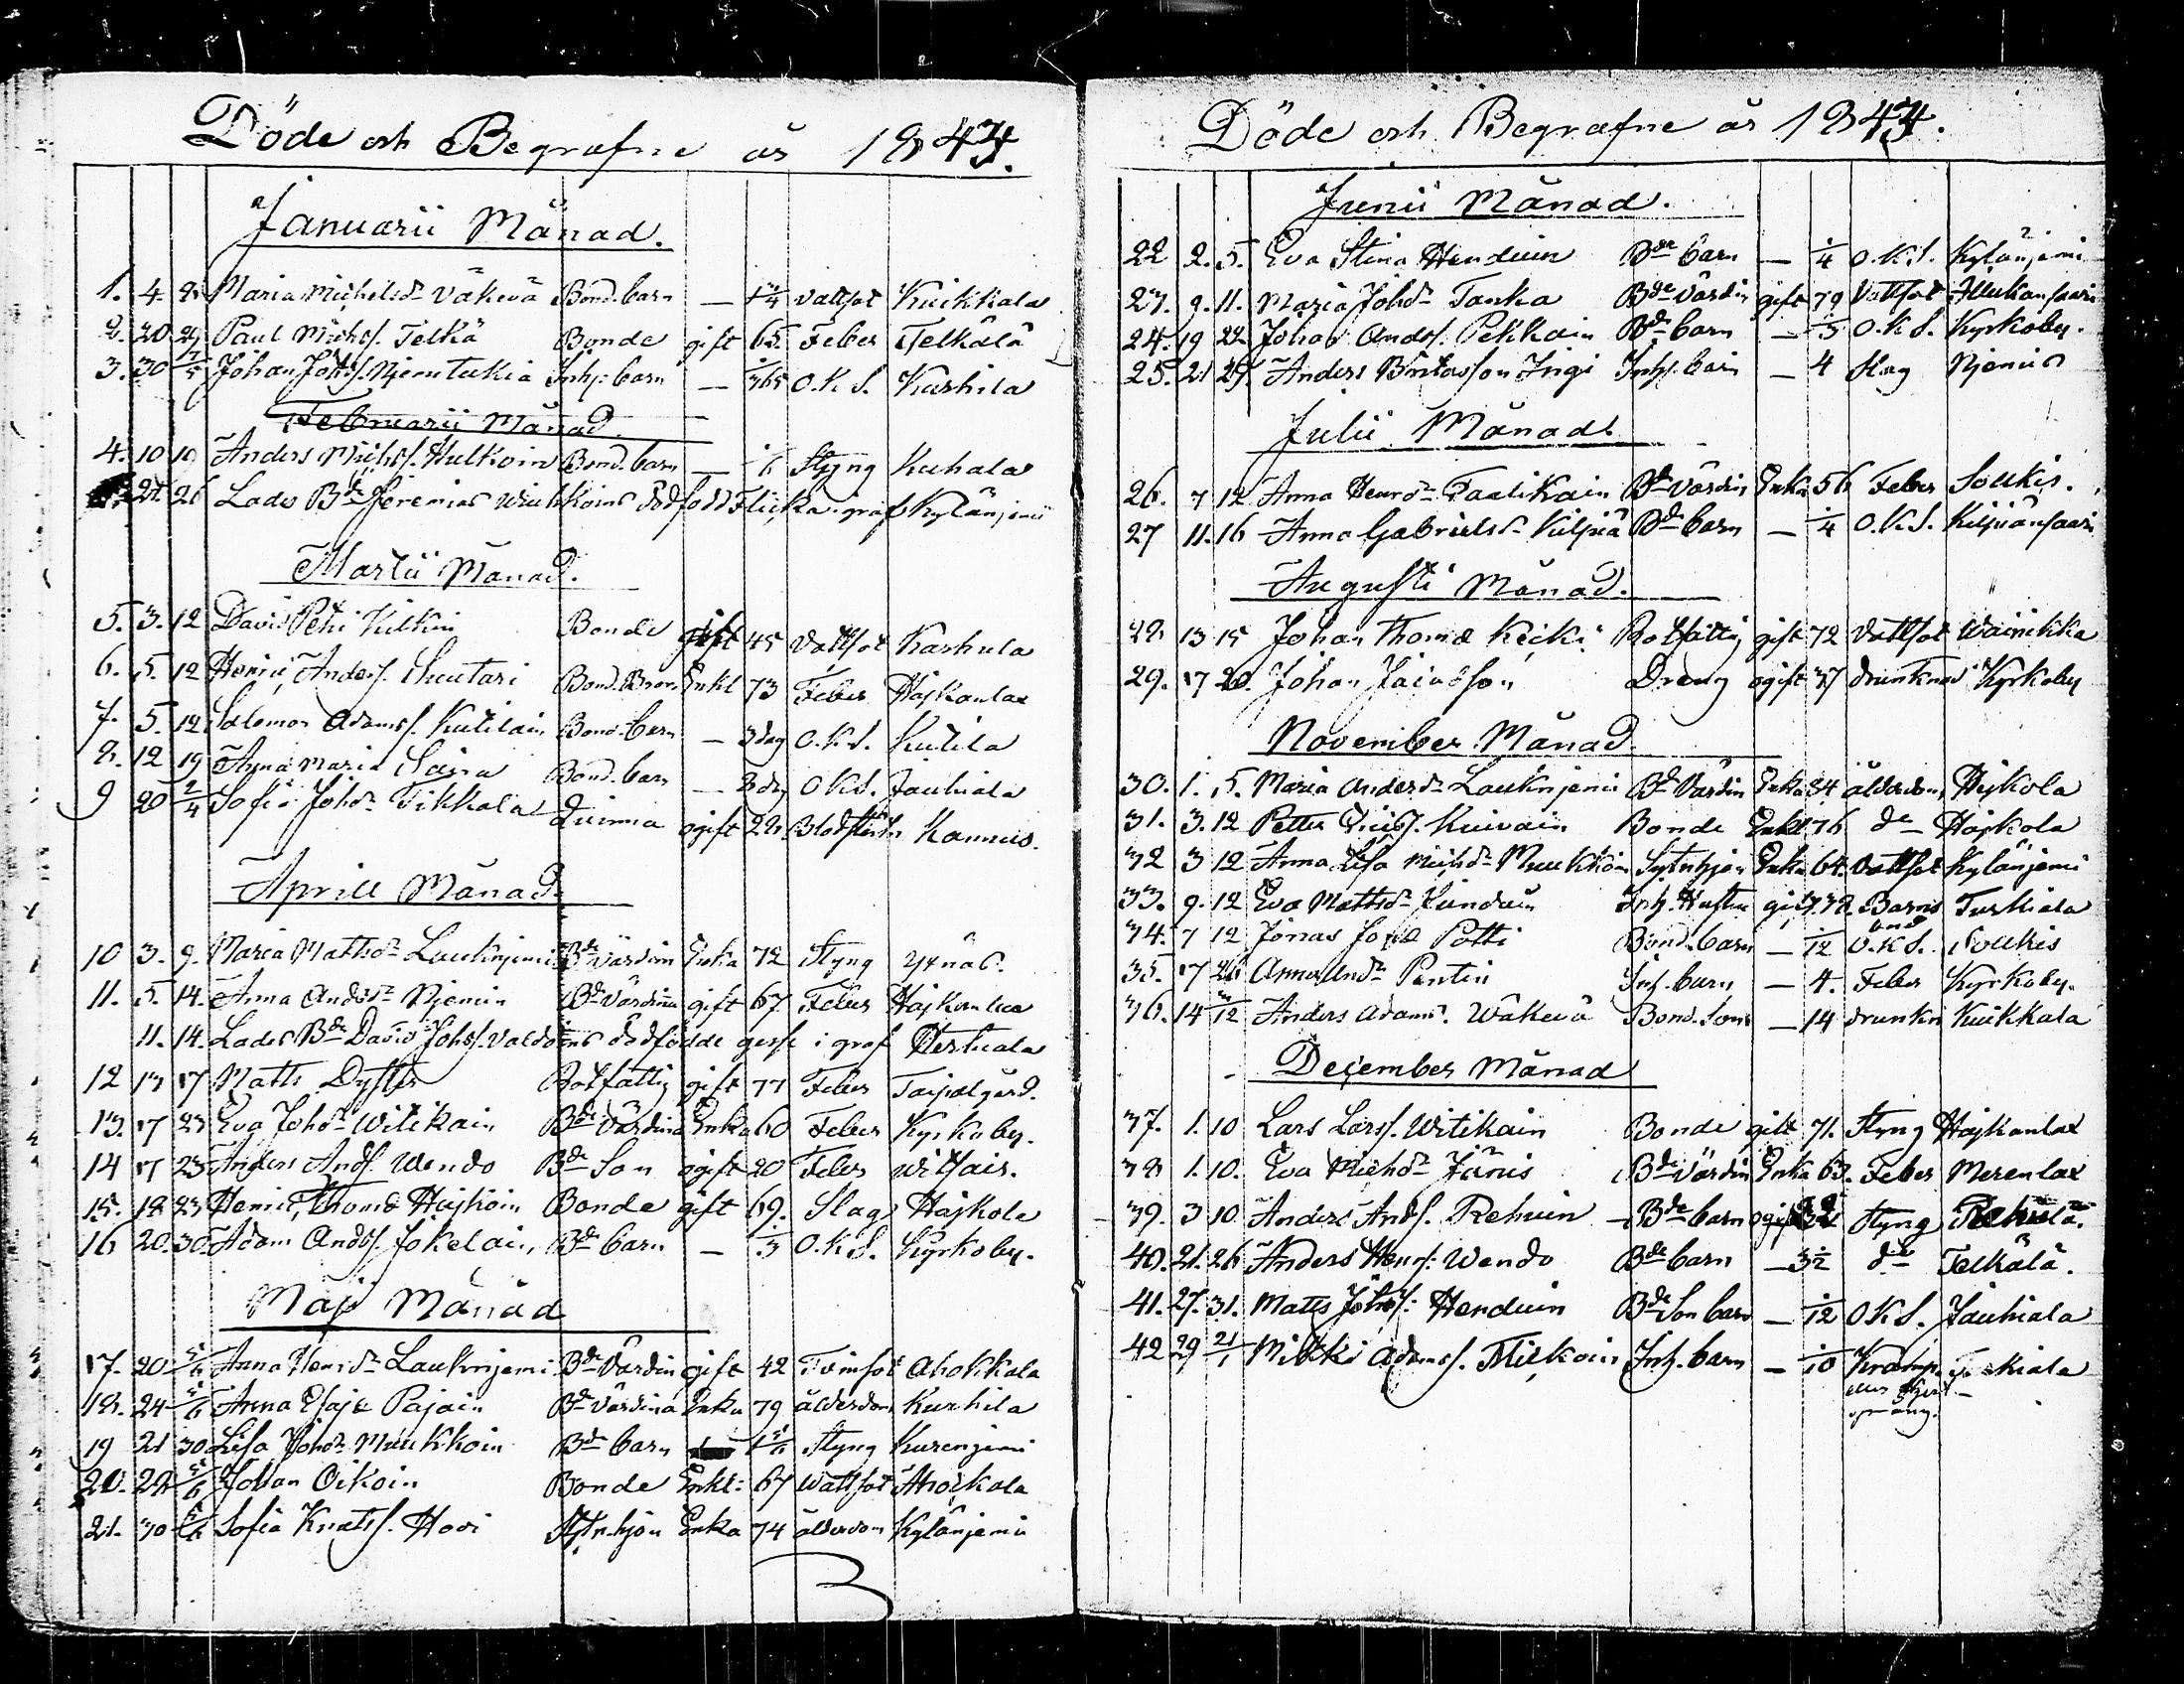 Döde och Begrafne år 1843.
Januarii Månad.
1. 4. 8 Maria Michelsdr Väkevä Bond. barn — 1 3/4 Vattsot Kuikkala
2. 20 29 Paul Michss. Telkä Bonde gift 65 Feber Telkälä
3. 30 7/5 Johan Johss. Njemitukia Inh: barn — 1/365 O.K.S. Kurhila
Februarii Månad.
4. 10 19 Anders Michss. Hulkoin Bond. barn — 1/6 Styng Kuhala
21. 26 Lades Bde Jeremias dödfödd Flicka i graf Kylänjemi
Martii Månad.
5. 3. 12 David Petri Kilkin Bonde gift 45 Vattsot Karhula
6. 5. 12 Henric Anderss. Suutari Bond. Bror Enkl 73 Feber Hajkanlax
7. 5. 12 Salomon Adamss. Kutilain Bond. barn — 3 dag O.K.S. Kutila
8. 12 19 Anna Maria Saira Bond. barn — 3 dg O.K.S. Jauhiala
9 20 2/4 Sofia Johdr Tikkala Quinna ogift 28 Kannus.
Aprill Månad.
10 3. 9. Maria Mattsdr Lauknjemi Bde Värdin Enka 72 Styng
11. 5. 14. Anna Andrsdr Njemin Bde Värdina gift 67 Feber Hajkanlax
11. 14. Lades Bde David Johss. dödfödde gosse i graf
12 13 17 Matts Dyster Rotfattig gift 77 Feber Taipalgård.
13. 17 23 Eva Johdr Witikain Bde Värdina Enka 60 Feber Kyrkoby.
14 17 23 Anders Andss. Wendo Bde Son ogift 20 Feber Witsais.
15. 18 23 Henric Thomæ Hajkoin Bonde gift 69. Slag Hajkola
16 20. 30. Adam Andss. Jokelain, Bde barn — 1/3 O.K.S. Kyrkoby.
Maji Månad
17. 20 5/6 Anna Henrdr Lauknjemi Bde Värdin gift 42 Tvinsot Ahokkala
18. 24 5/6 Anna Esaiæ Pajain Bde Värdina Enka 79 ålderdom Kurhila
19 21 30 Lisa Johdr Muukkoin Bde barn 1 5/6 Styng Kurenjemi
20. 28 5/6 Johan Oikoin Bonde Enkl: 67 Wattsot Ahokkala
21. 30 5/6 Sofia Knutss. Hovi Sytn.hjon Enka 74 ålderdom Kylänjemi
Döde och Begrafne år 1843.
Junii Månad.
22 2. 5. Eva Stina Henduin Bde barn — 1/4 O.K.S. Kylänjemi
23. 9. 11. Maria Johdr Tanka Bde Värdin gift 79 Vattsot Ilukansaari
24. 19 24 Johan Andss. Pekkain Bde barn — 1/3 O.K.S. Kyrkoby.
25. 21 29. Anders Britasson Ingi Inh. barn — 4 Slag Njemis
Julii Månad.
26. 7 12 Anna Henrdr Taalikain Bde Värdin Enka 56 Feber Soukis.
27 11. 16 Anna Gabrielsdr Kilpiä Bde barn — 1/4 O.K.S. Kilpiänsaari
Augusti Månad.
28 13 15 Johan Thomæ Keiki Rotfattig gift 72 Vattsot Wainikka
29. 17 20. Johan Jacobsson Dreng ogift 37 drunknad Kyrkoby
November Månad.
30. 1. 5. Maria Andersdr Lauknjemi Bde Värdin Enka 84 ålderdom Hajkola
31. 3. 12 Petter Kuivain Bonde Enkl. 76 do Hajkola
32 3 12 Anna Lisa Michdr Muukkoin Sytnhjon Enka 64. Vattsot Kylänjemi
33. 9. 12 Eva Mattsdr Inh. Hustru gift. 38. Barns Turkiala
34. 7 12 Jonas Jonæ Potti Bond. barn — 1/12 O.K.S. Soukis
35. 17 26 Anna Andr Pentin Inh. barn — 4. Feber Kyrkoby.
36. 14 3/12 Anders Adams. Wäkevä Bond. Son — 14 drunkn Kuikkala
December Månad
37. 1. 10 Lars Larss. Witikain Bonde gift 71. Styng Hajkanlax
38 1. 10. Eva Michdr Jänis Bde Värdin Enka 63. Feber Merenlax
39. 3 10 Anders Andss. Rehuin Bde barn ogift Styng Rehula.
40. 21. 26 Anders Henrss. Wendo Bde barn — 3 1/2 do Telkälä.
41. 27. 31. Matts Johss: Henduin Bde Son barn — 1/12 O.K.S. Jauhiala
42 29 21/1 Mikki Adamss. Mielkoin Inh. barn — 1/10 Kramp